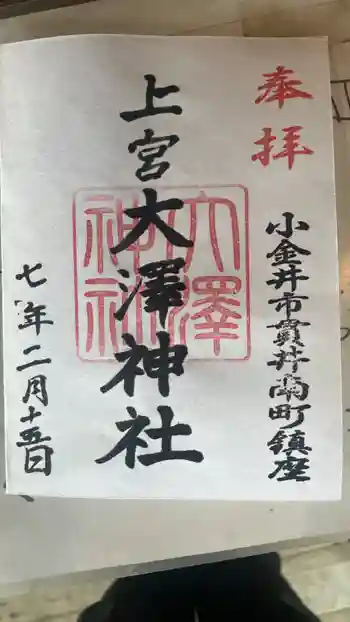 奉拝
小金井市貫井南町鎮座
上宮大澤神社
大澤神社
七年二月十五日